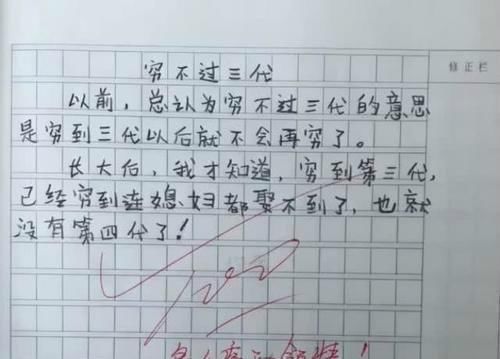 穷不过三代
修正栏
以前，总认为穷不过三代的意思
是穷到三代以后就不会再穷了。
长大后，我才知道，穷到第三代，
已经穷到连媳妇都娶不到了，也就
没有第四代了！
100